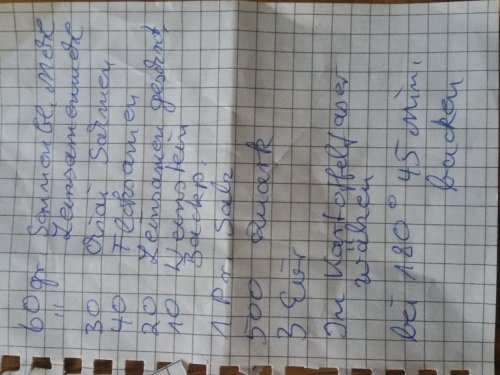 60 gr. Sonnenbl. Mehl
" Leinsamenmehl
30 Chiai Sahmen
40 Flohsamen
20 Leinsamen geschrot.
10 Weinstein
Backp.
1 Pr Salz
500 Quark
3 Eier
In Kartoffelfaser
wälzen
bei 180° 45 Min.
backen